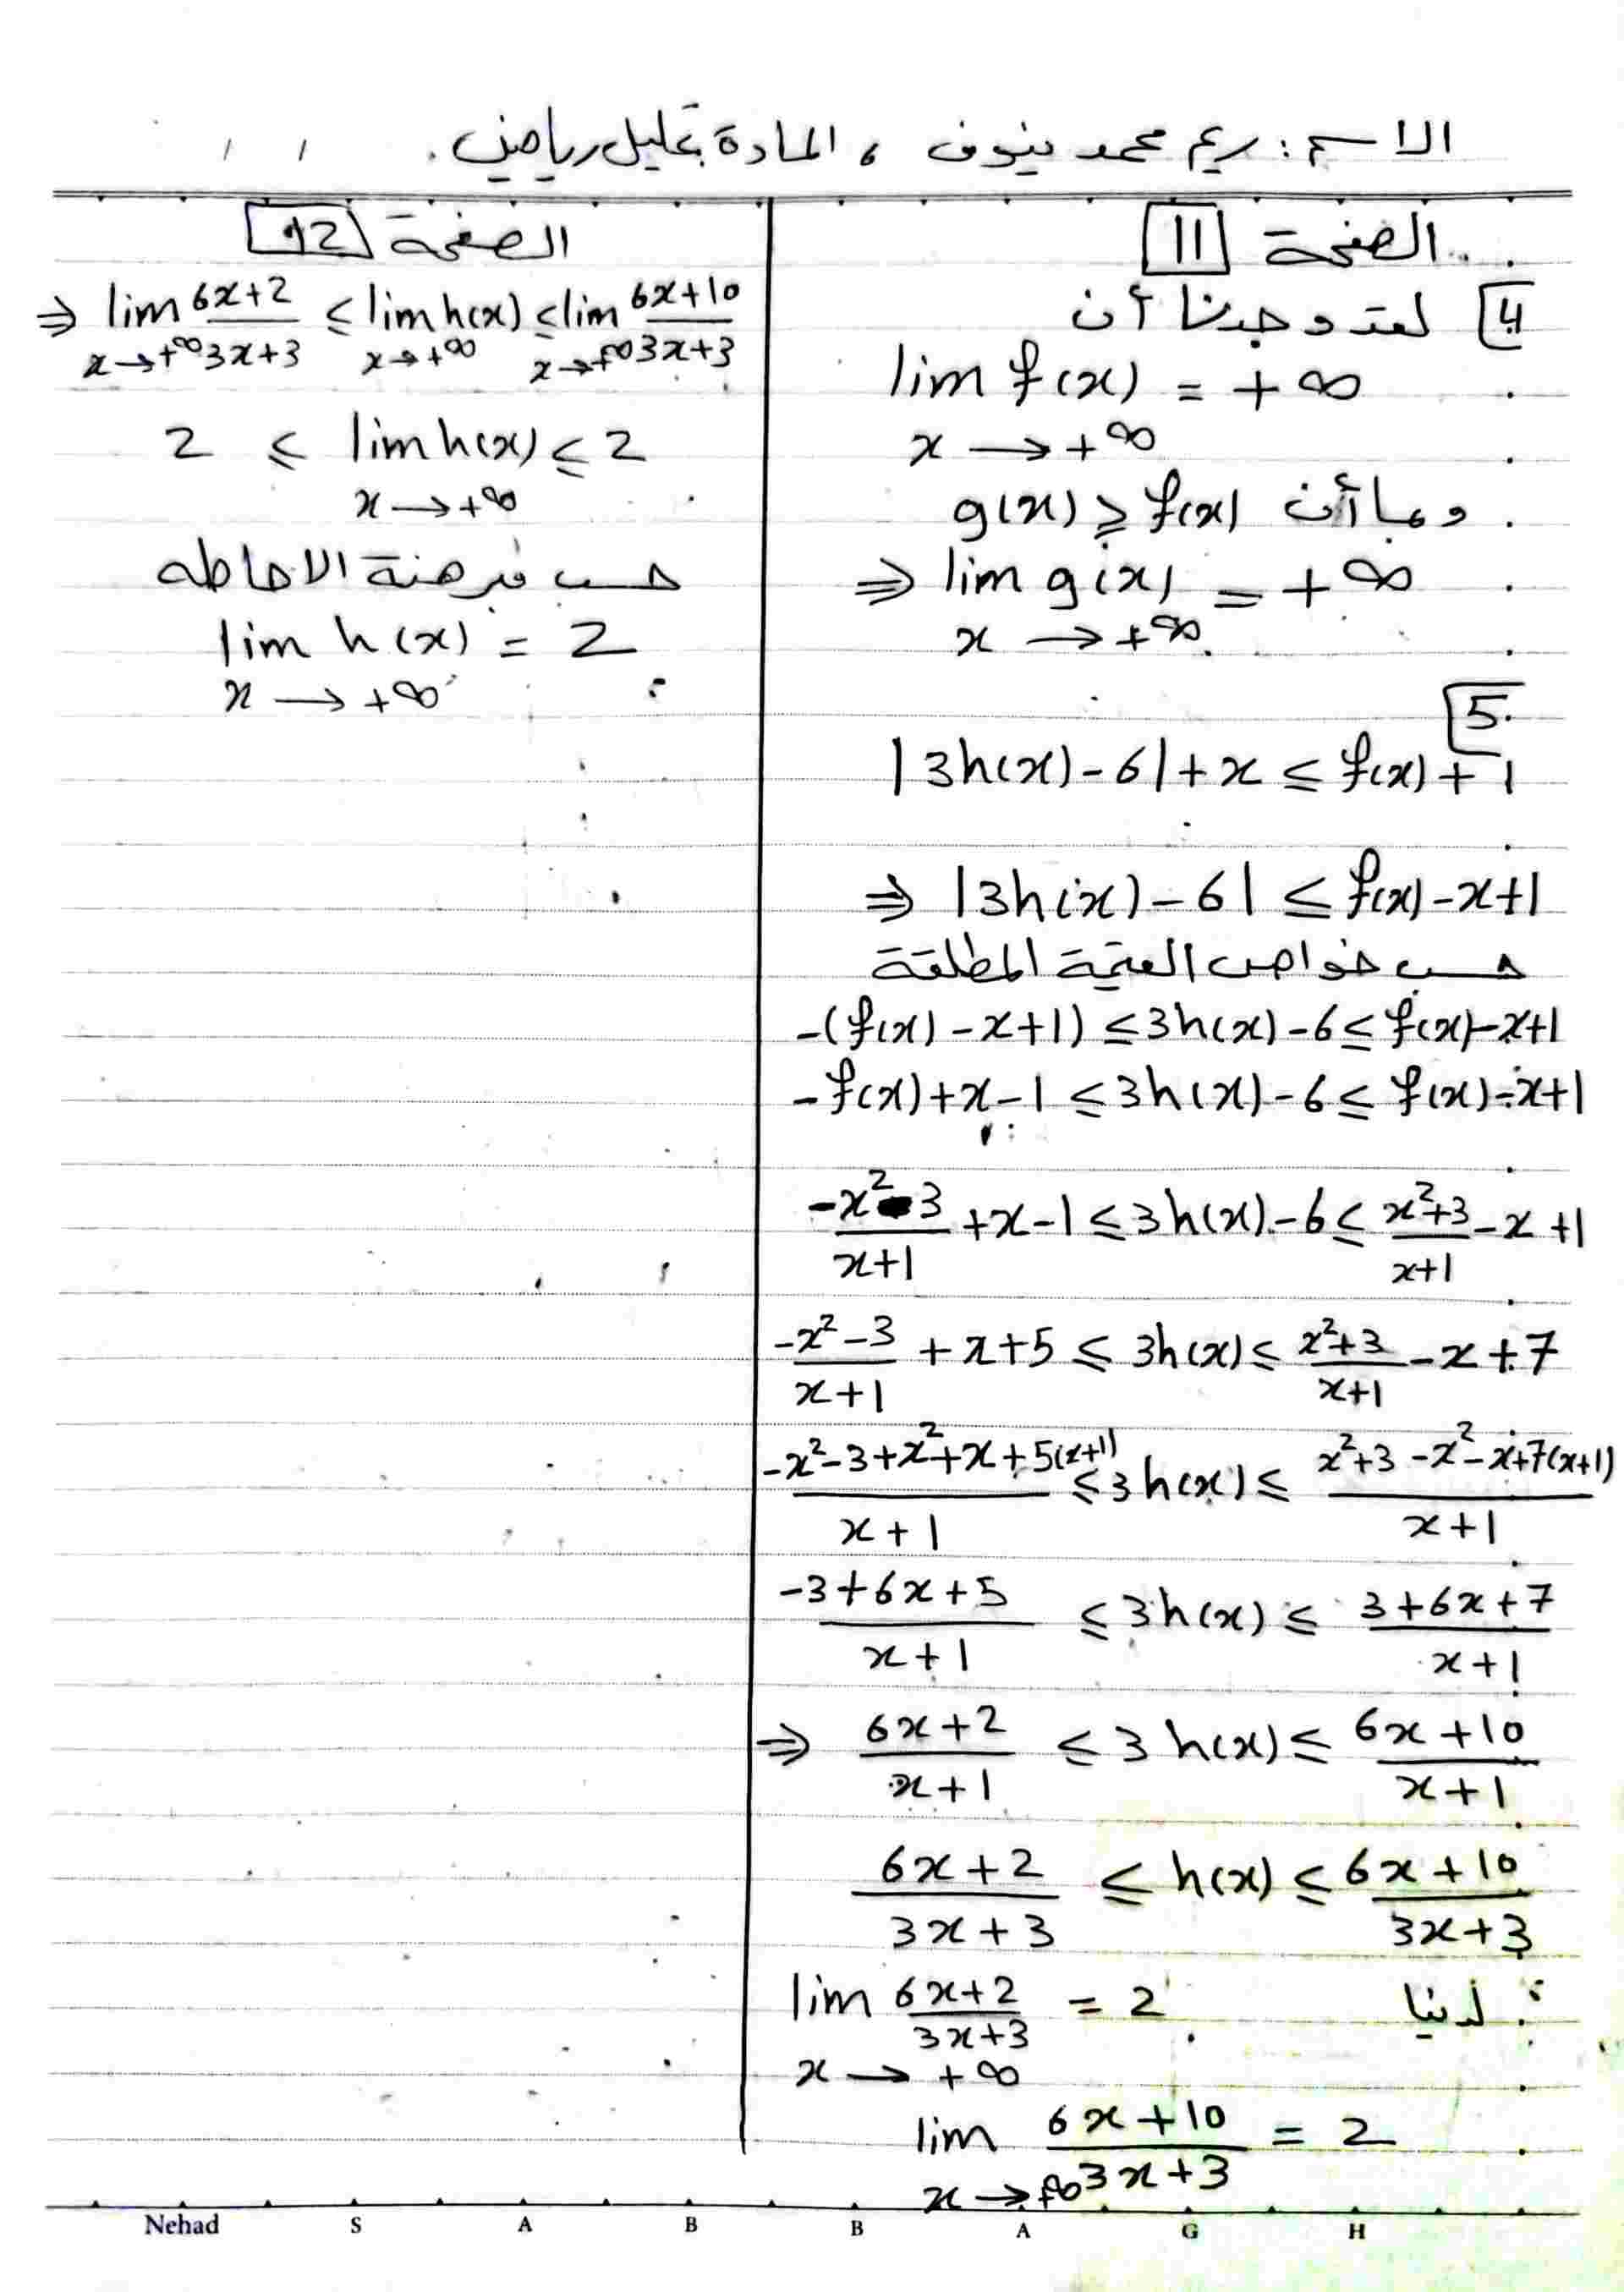 الاسم: ريم محمد ينوف ، المادة تحليل رياضي.
الصفحة 11
4 لقد وجدنا أن
lim f(x) = +∞
x → +∞
وبما أن g(x) ⩾ f(x)
⇒ lim g(x) = +∞
x → +∞
5
|3h(x)-6|+x ≤ f(x)+1
⇒ |3h(x)-6| ≤ f(x)-x+1
حسب خواص القيمة المطلقة
-(f(x)-x+1) ≤ 3h(x)-6 ≤ f(x)-x+1
-f(x)+x-1 ≤ 3h(x)-6 ≤ f(x)-x+1
(-x²-3)/(x+1) +x-1 ≤ 3h(x)-6 ≤ (x²+3)/(x+1) -x+1
(-x²-3)/(x+1) +x+5 ≤ 3h(x) ≤ (x²+3)/(x+1) -x+7
(-x²-3+x²+x+5(x+1))/(x+1) ≤ 3h(x) ≤ (x²+3-x²-x+7(x+1))/(x+1)
(-3+6x+5)/(x+1) ≤ 3h(x) ≤ (3+6x+7)/(x+1)
⇒ (6x+2)/(x+1) ≤ 3h(x) ≤ (6x+10)/(x+1)
(6x+2)/(3x+3) ≤ h(x) ≤ (6x+10)/(3x+3)
لدينا: lim (6x+2)/(3x+3) = 2
x → +∞
lim (6x+10)/(3x+3) = 2
x → +∞
الصفحة 12
⇒ lim (6x+2)/(3x+3) ≤ lim h(x) ≤ lim (6x+10)/(3x+3)
x→+∞ x→+∞ x→+∞
2 ≤ lim h(x) ≤ 2
x → +∞
حسب مبرهنة الاحاطه
lim h(x) = 2
x → +∞
Nehad S A B B A G H